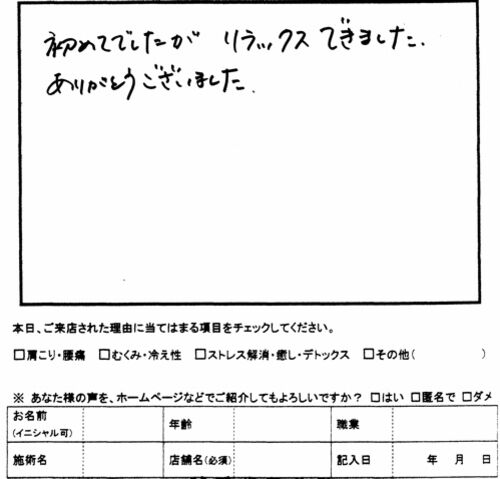 初めてでしたが リラックスできました.
ありがとうございました.
本日、ご来店された理由に当てはまる項目をチェックしてください。
□肩こり・腰痛 □むくみ・冷え性 □ストレス解消・癒し・デトックス □その他( )
※ あなた様の声を、ホームページなどでご紹介してもよろしいですか？ □はい □匿名で □ダメ
お名前 (イニシャル可) 年齢 職業
施術名 店舗名(必須) 記入日 年 月 日